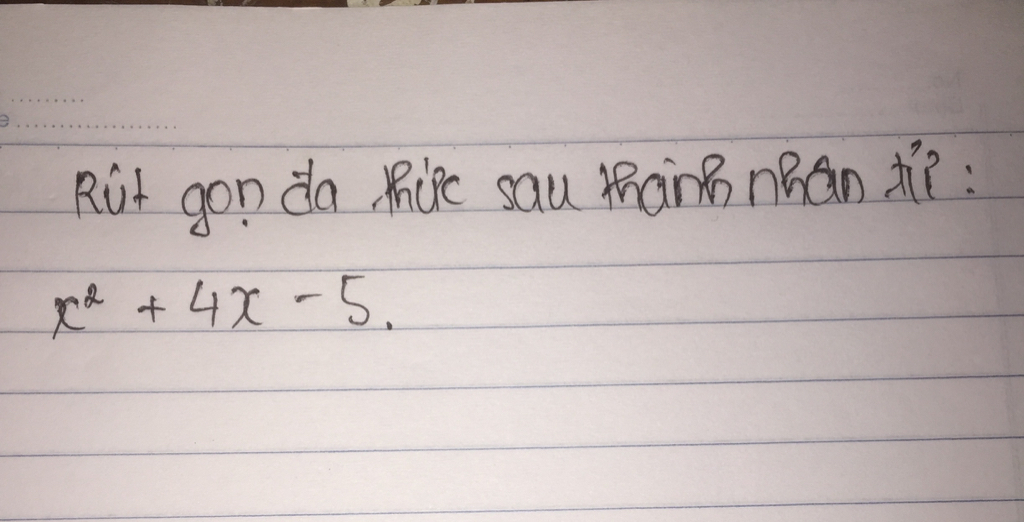 Rút gọn đa thức sau thành nhân tử:
x² + 4x - 5.